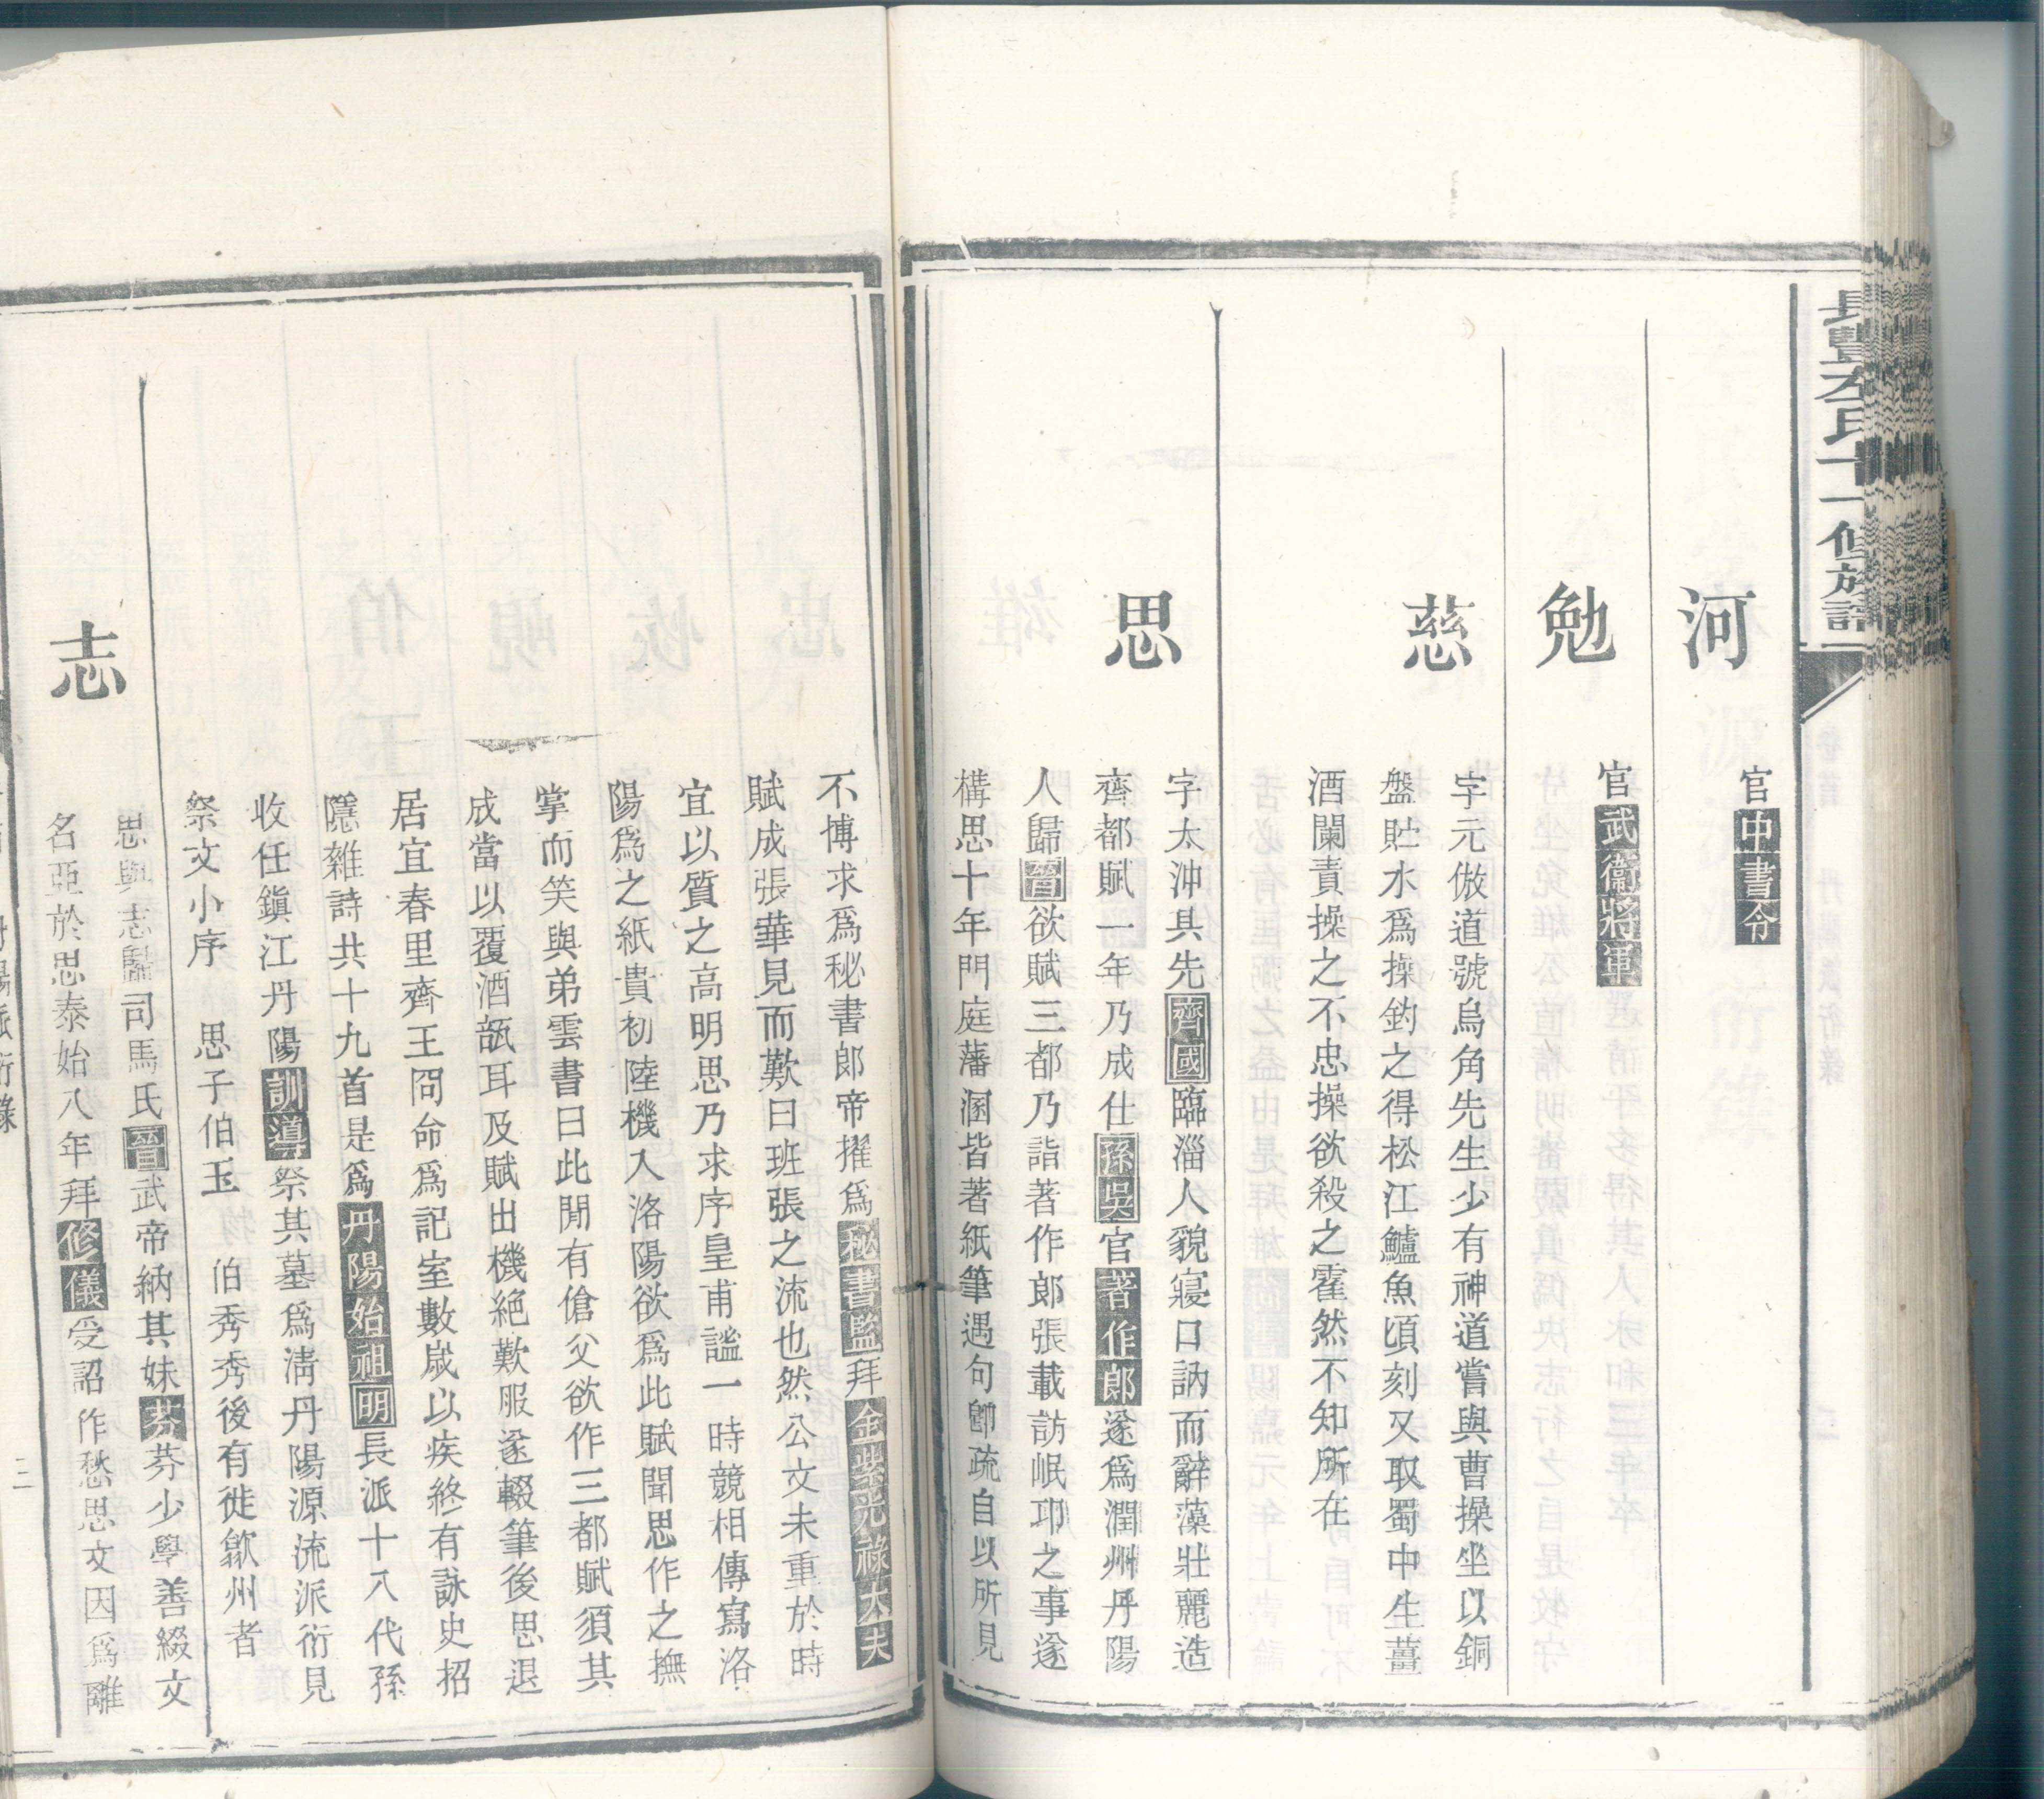 長豐左氏十一修族譜
河
官中書令
勉
官武衞將軍
慈
字元倣道號烏角先生少有神道嘗與曹操坐以銅
盤貯水爲操釣之得松江鱸魚頃刻又取蜀中生薑
酒闌責操之不忠操欲殺之霍然不知所在
思
字太沖其先齊國臨淄人貌寢口訥而辭藻壯麗造
齊都賦一年乃成仕孫吳官著作郎遂爲潤州丹陽
人歸晉欲賦三都乃詣著作郎張載訪岷邛之事遂
構思十年門庭藩溷皆著紙筆遇句卽疏自以所見
不博求爲秘書郎帝擢爲秘書監拜金紫光祿大夫
賦成張華見而歎曰班張之流也然公文未重於時
宜以質之高明思乃求序皇甫謐一時競相傳寫洛
陽爲之紙貴初陸機入洛陽欲爲此賦聞思作之撫
掌而笑與弟雲書曰此閒有傖父欲作三都賦須其
成當以覆酒瓿耳及賦出機絕歎服遂輟筆後思退
居宜春里齊王冏命爲記室數歲以疾終有詠史招
隱雜詩共十九首是爲丹陽始祖明長派十八代孫
收任鎭江丹陽訓導祭其墓爲淸丹陽源流派衍見
祭文小序　思子伯玉　伯秀秀後有徙歙州者
志
思與志歸司馬氏晉武帝納其妹芬芬少學善綴文
名亞於思泰始八年拜修儀受詔作愁思文因爲離
三